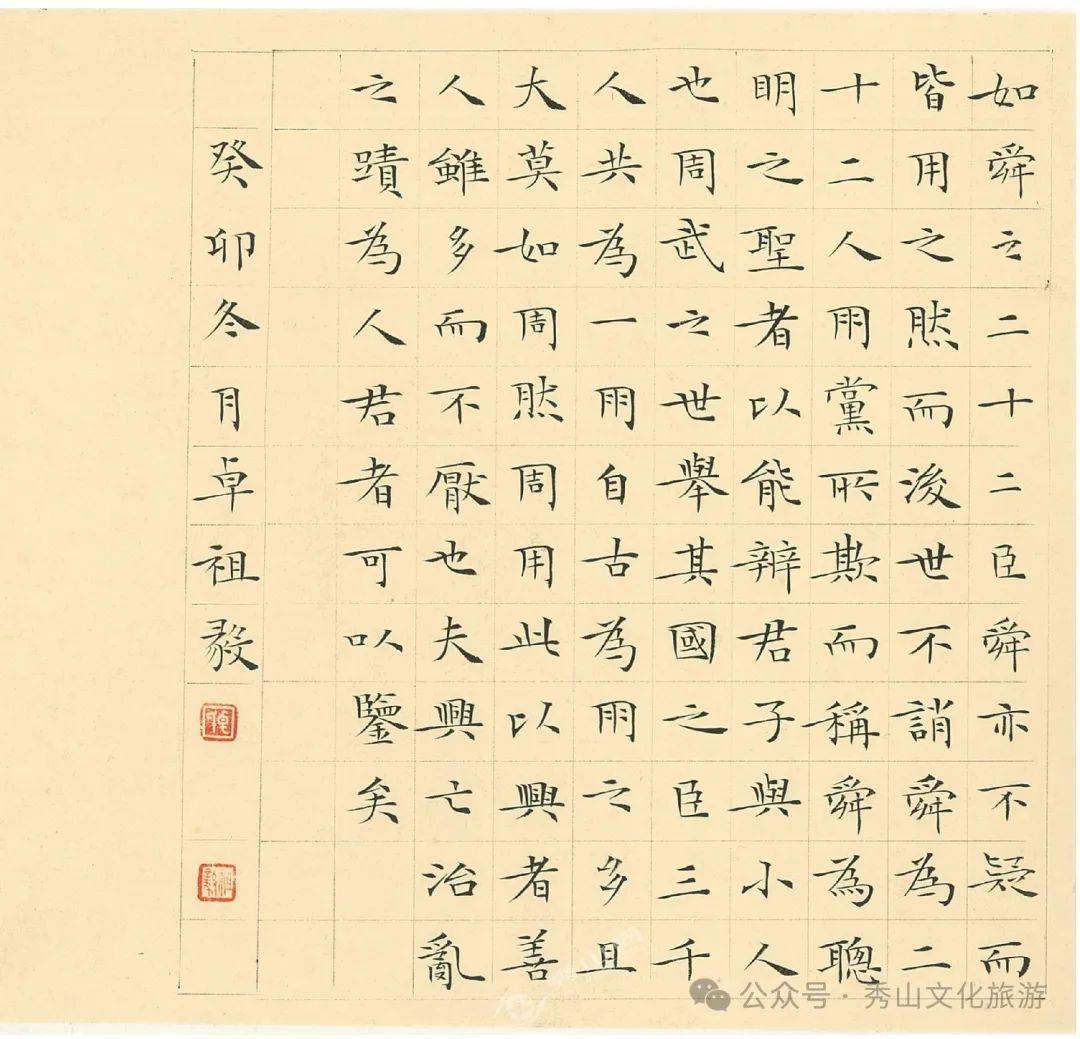 如舜之二十二臣舜亦不疑而
皆用之然而後世不誚舜為二
十二人朋黨所欺而稱舜為聰
明之聖者以能辧君子與小人
也周武之世舉其國之臣三千
人共為一朋自古為朋之多且
大莫如周然周用此以興者善
人雖多而不厭也夫興亡治亂
之蹟為人君者可以鑒矣
癸卯冬月卓祖毅
公众号·秀山文化旅游